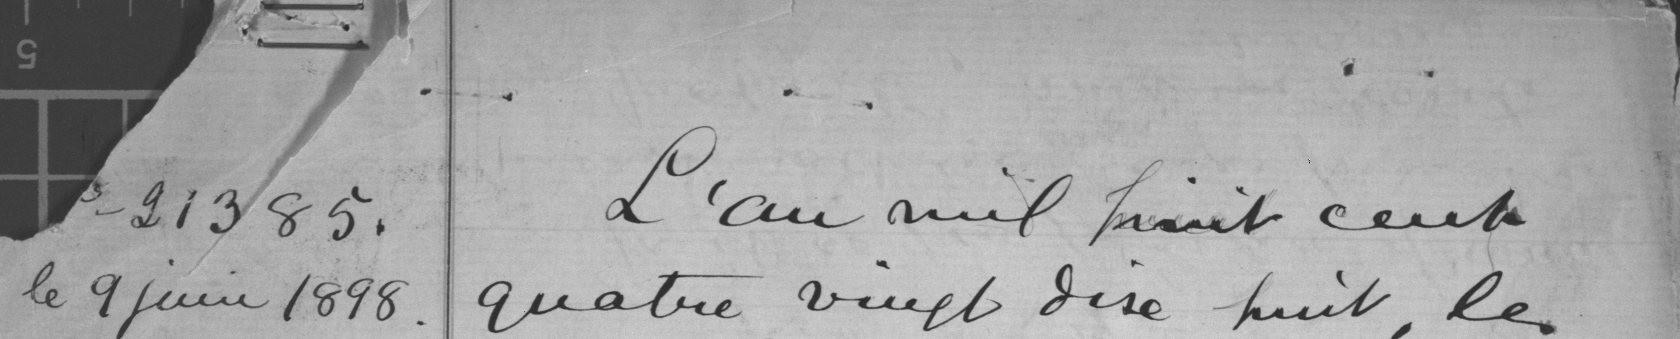 5
s - 21385.
le 9 juin 1898.
L'an mil huit cent
quatre vingt dix huit, le